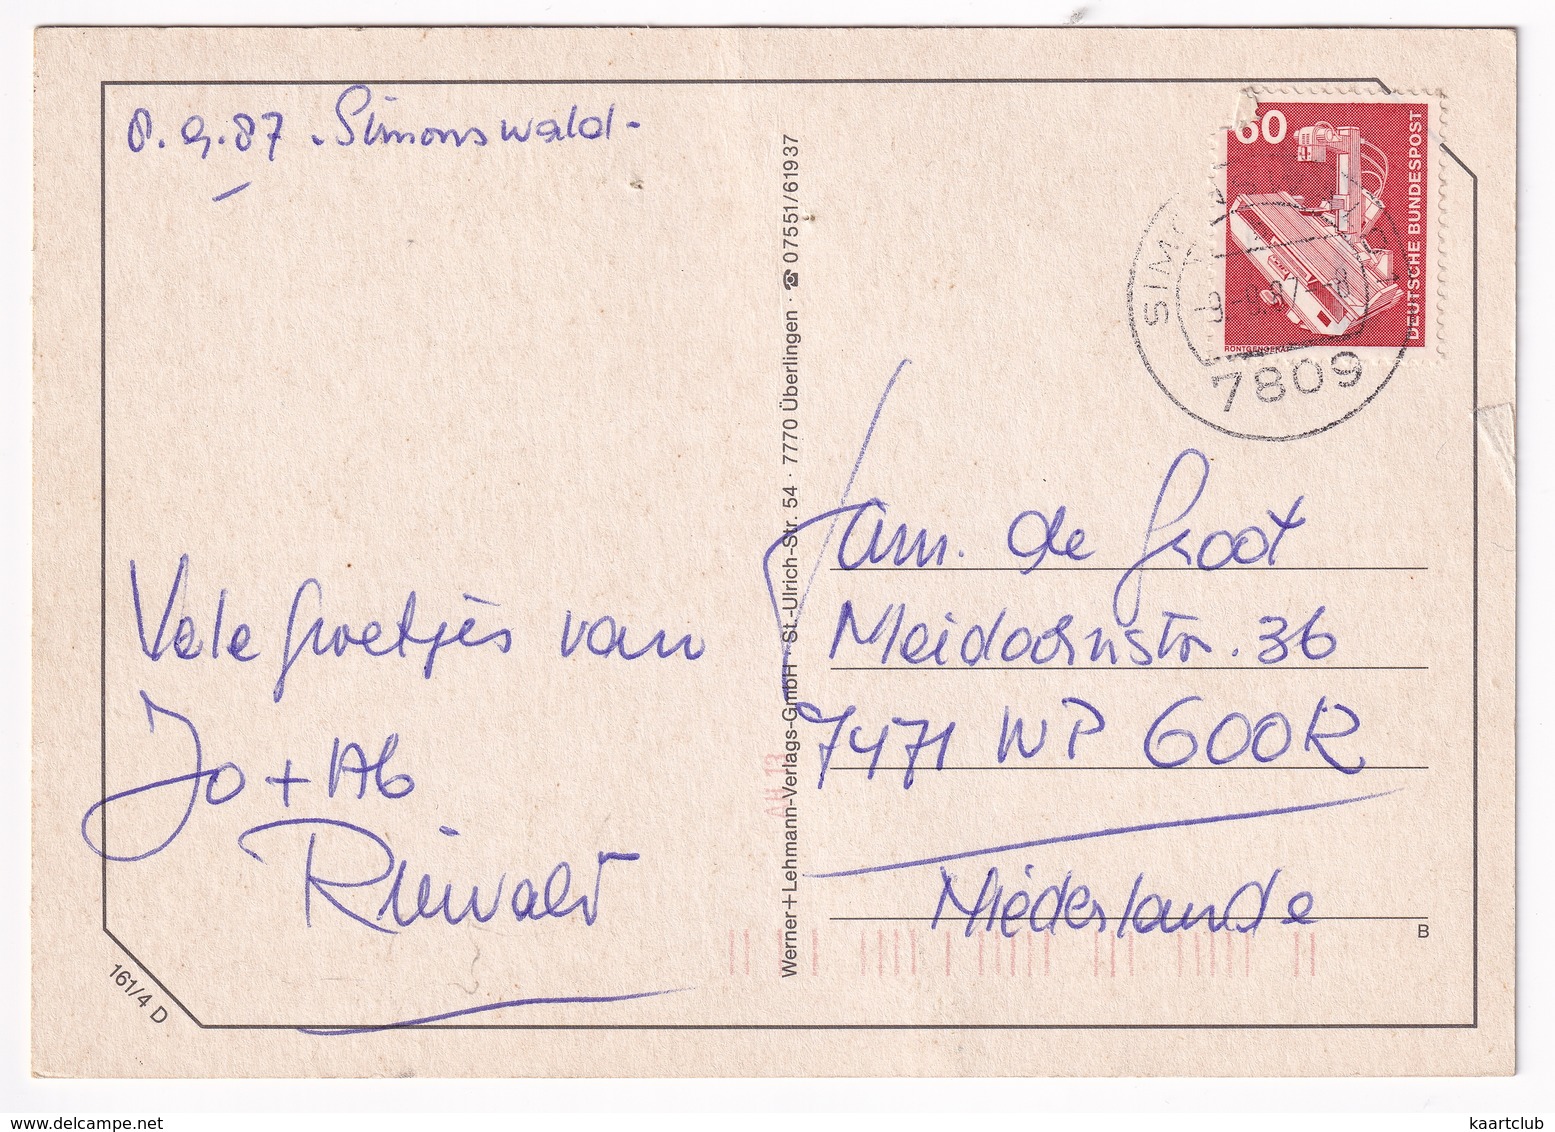 8.9.87 - Simonswald -
Vele groetjes van
Jo + Ab
Riewald
161/4 D
Werner+Lehmann-Verlags-GmbH · St.-Ulrich-Str. 54 · 7770 Überlingen · ☎ 07551/61937
60
DEUTSCHE BUNDESPOST
-9.-9.87--8
7809
Fam. de Groot
Meidoornstr. 36
7471 WP GOOR
Niederlande
B
www.delcampe.net
kaartclub